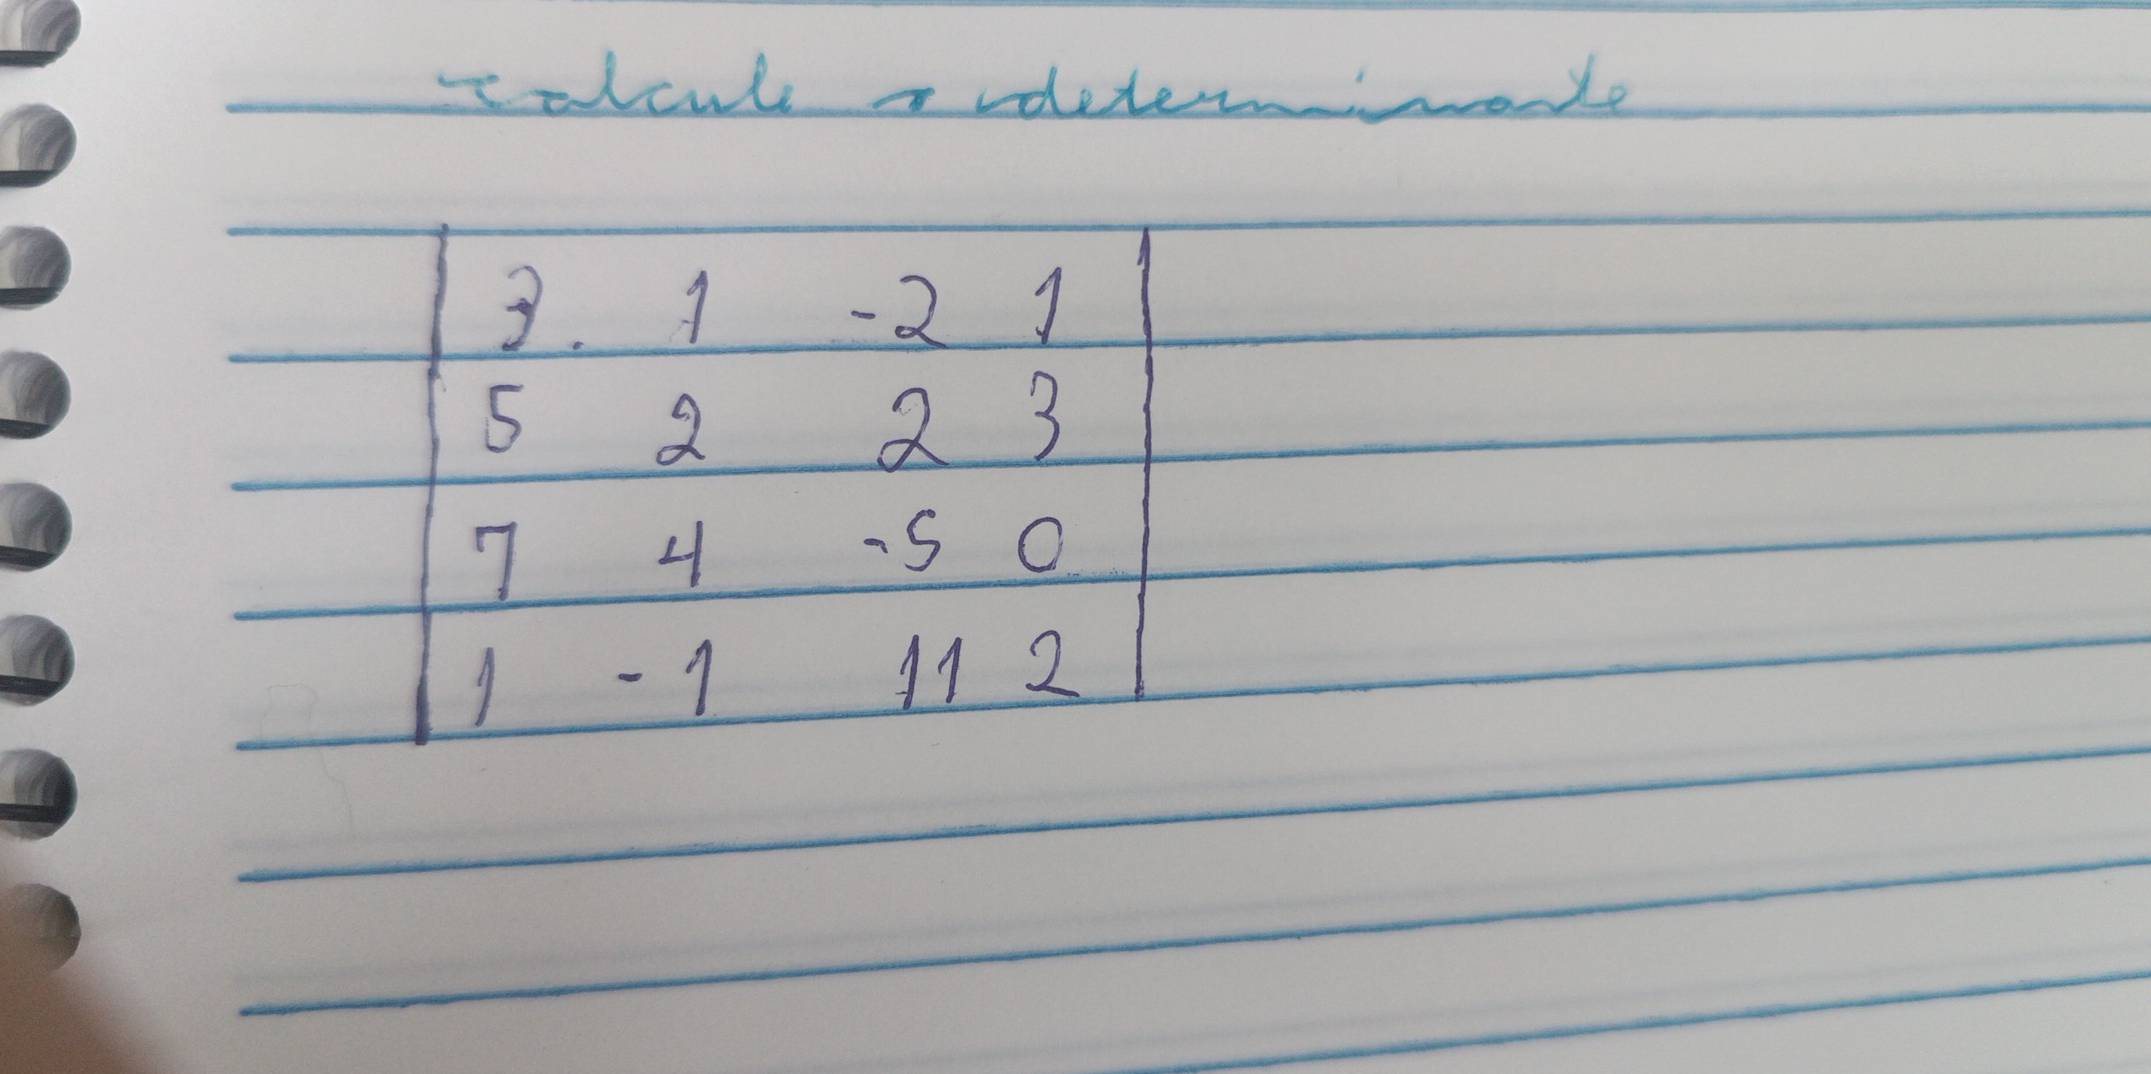 calcule o determinante
3. 1 -2 1
5 2 2 3
7 4 -5 0
1 -1 11 2